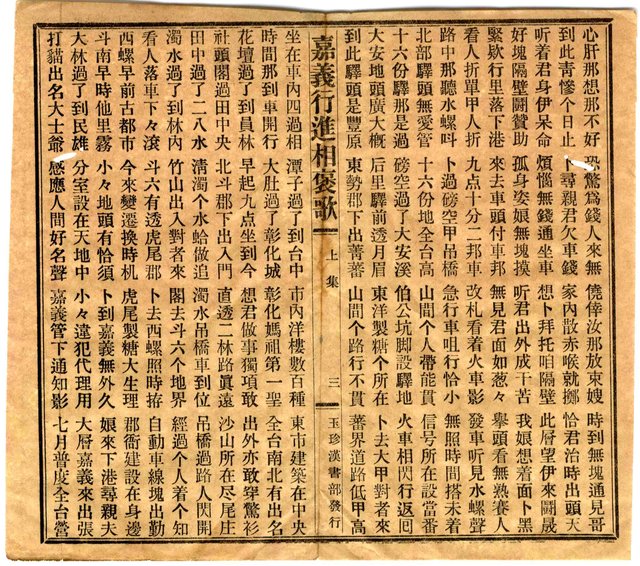 心肝那想那不好 恐驚為錢人來無 僥倖汝那放束嫂 時到無塊通見哥
到此青慘个日止 卜尋親君欠車錢 家內散赤喉就擲 恰君治時出頭天
听着君身伊呆命 煩惱無錢通坐車 想卜拜托咱隔壁 此層望伊來鬪晟
好塊隔壁鬪贊助 孤身姿娘無塊摸 听君出外成干苦 我娘想着面卜黑
緊欵行里落下港 來去車頭付車邦 無見君面如葱々 舉頭看無熟賽人
看人折單甲人折 九点十分二邦車 改札看着火車影 發車听見水螺聲
路中那聽水螺叫 卜過磅空甲吊橋 急行車咀行恰小 無照時間搭未着
北部驛頭無愛管 十六份地全台高 山間个人帶能貫 信号所在設當番
十六份驛那是過 磅空過了大安溪 伯公坑脚設驛地 火車相閃行返囘
大安地頭廣大概 后里驛前透月眉 東洋製糖个所在 卜去大甲對者來
到此驛頭是豐原 東勢郡下出菁蕃 山間个路行不貫 蕃界道路低甲高
嘉義行進相褒歌 上集 三 玉珍漢書部發行
坐在車內四過相 潭子過了到台中 市內洋樓數百種 東市建築在中央
時間那到車開行 大肚過了彰化城 彰化媽祖第一聖 全台南北有出名
花壇過了到員林 早起九点坐到今 想君做事獨項敢 出外亦敢穿驚衫
社頭閣過田中央 北斗郡下出入門 直透二林路真遠 沙山所在尽尾庄
田中過了二八水 淸濁个水蛤做追 濁水吊橋車到位 吊橋過路人閃開
濁水過了到林內 竹山出入對者來 閣去斗六个地界 經過个人着个知
看人落車下々滾 斗六有透虎尾郡 卜去西螺照時拵 自動車線塊出勤
西螺早前古都市 今來變遷換時机 虎尾製糖大生理 郡衙建設在身邊
斗南早時他里霧 小々地頭有恰須 卜到嘉義無外久 娘來下港尋親夫
大林過了到民雄 分室設在天地中 小々違犯代理用 大層嘉義來出張
打貓出名大士爺 感應人間好名聲 嘉義管下通知影 七月普度全台營